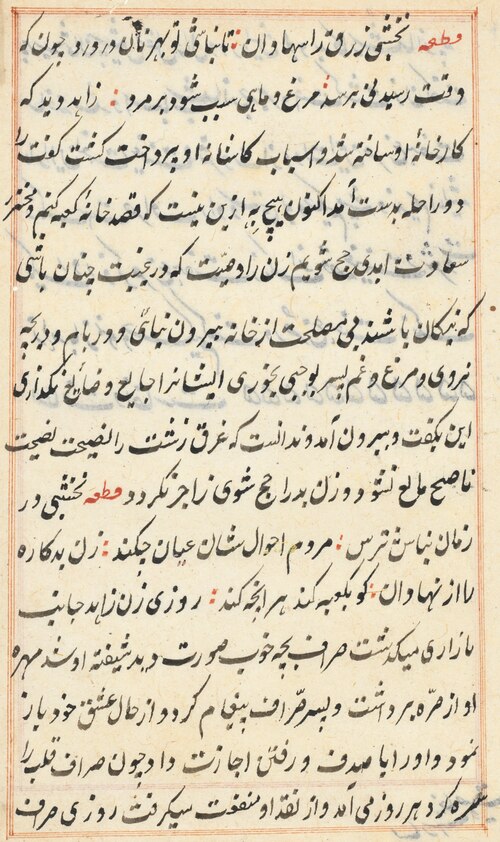 قطعه نخشبی رزق را سها دان : تا نباشی تو بهر نان در درد چون که
وقت رسیدنی برسد : مرغ و ماهی سبب شود بر مرد : زاهد دید که
کارخانهٔ او ساخته شد و اسباب کاشانهٔ او پرداخت گشت گفت
دو راحله بدست آمد اکنون هیچ به ازین نیست که قصد خانهٔ کعبه کنم و
سعادت ابدی حج شویم زن را وصیت که در غیبت چنان باشی
که نیکان باشند بی مصلحت از خانه بیرون نیائی و در بام و دریچه
نروی و مرغ و غم پسر بوجبی بخوری ایشانرا جایع و ضایع نگذاری
این بگفت و بیرون آمد و ندانست که عرق زشت را نصیحت نصیحت
ناصح مانع نشود و زن بد را حج شوی زاجر نگردد قطعه نخشبی در
زمان نیاسش ترس : مردم احوال شان عیان چکنند : زن بدکاره
را از نها دان : کو بکعبه کند هر انچه کند : روزی زن زاهد جانب
بازاری میگذشت صراف بچه خوب صورت دید شیفتهٔ او شد مهره
او از حره برداشت و بسر صراف پیغام کرد و از حال عشق خود باز
نمود و او را با صدف و رفتن اجازت داد چون صراف قلب را
سره کرد هر روز می آمد و از نقد او منفعت میگرفت روزی صراف